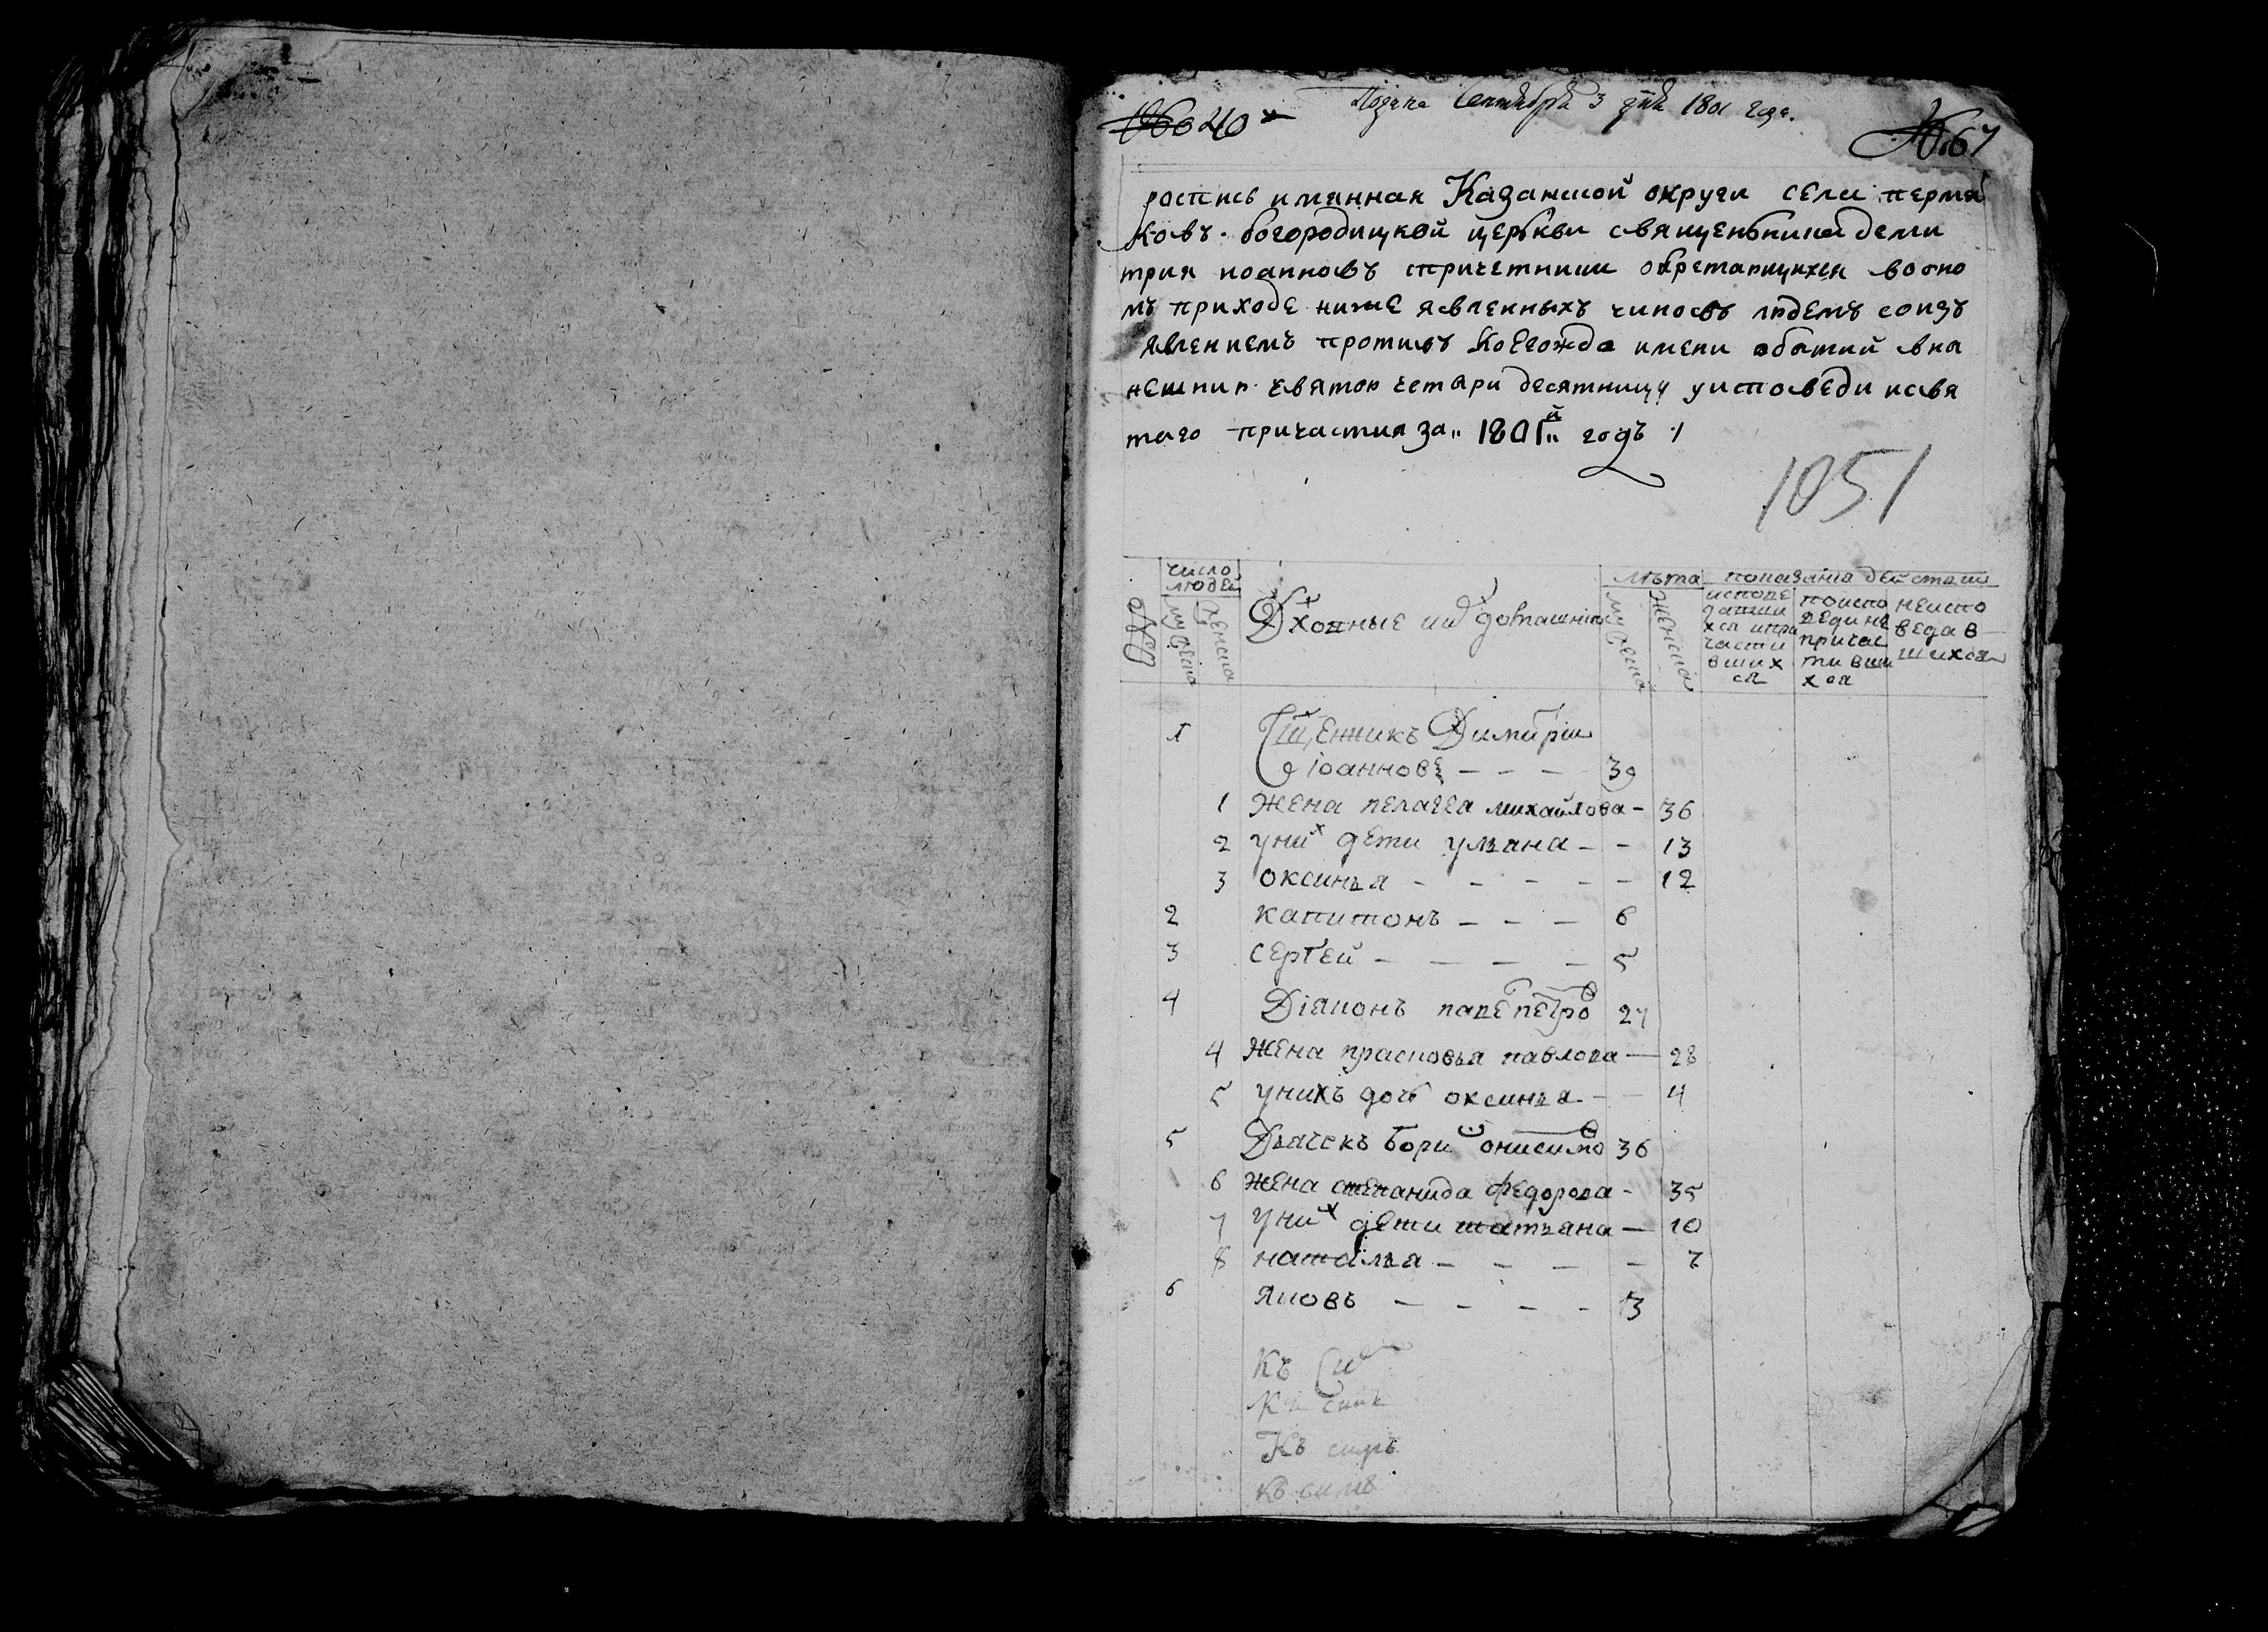 40
Подана Сентября 3 дня 1801 года.
№ 67
роспись имянная Казанской округи села пермя
ковъ богородицкой церкви священьника деми
трия иоанновъ спричетники обретающихся воono
мъ приходе ниже явленныхъ чиновъ людемъ соизъ
явлениемъ противъ коегождо имени о бытии вна
нешнию святою четари десятницу уисповеди исвя
таго причастия за 1801й годъ
1051
число людей
мужеска
женска
Дхоvные ихъ домашнiе
лѣта
мужеска
женска
показания действии
исповедавшихся ипричастившихся
поисповедине причастившихся
неисповедавшихся
1 Сщенникъ Димитрiи
iоанновъ - - - 39
1 жена пелагея михайлова - 36
2 униx дети ульана - - 13
3 оксинья - - - - - 12
2 капитонъ - - - 6
3 сергей - - - - 5
4 Дiяконъ паvе петро 27
4 жена прасковья павлова — 28
5 унихъ дочь оксинья - - 4
5 Дьячекъ бори онисимо 36
6 жена степанида федорова - 35
7 униx дети татьана — 10
8 наталья - - - - 7
6 яковъ - - - - 13
Къ
Къ
Къ
къ симъ